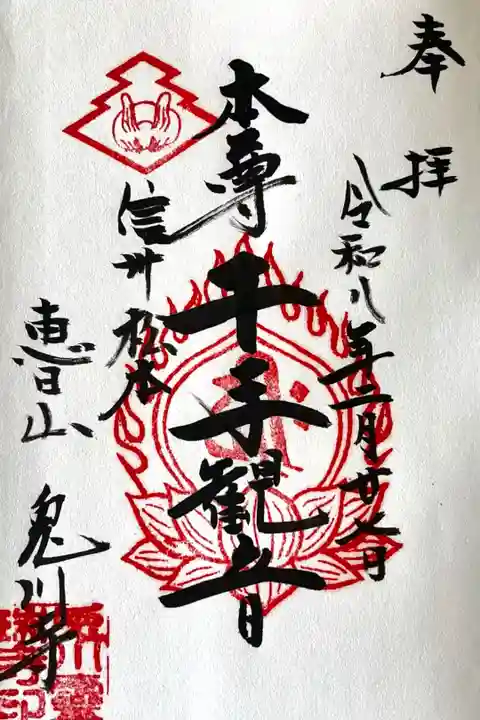 奉拝
令和八年二月廿七日
本尊千手観音
信州松本
恵日山
兎川寺